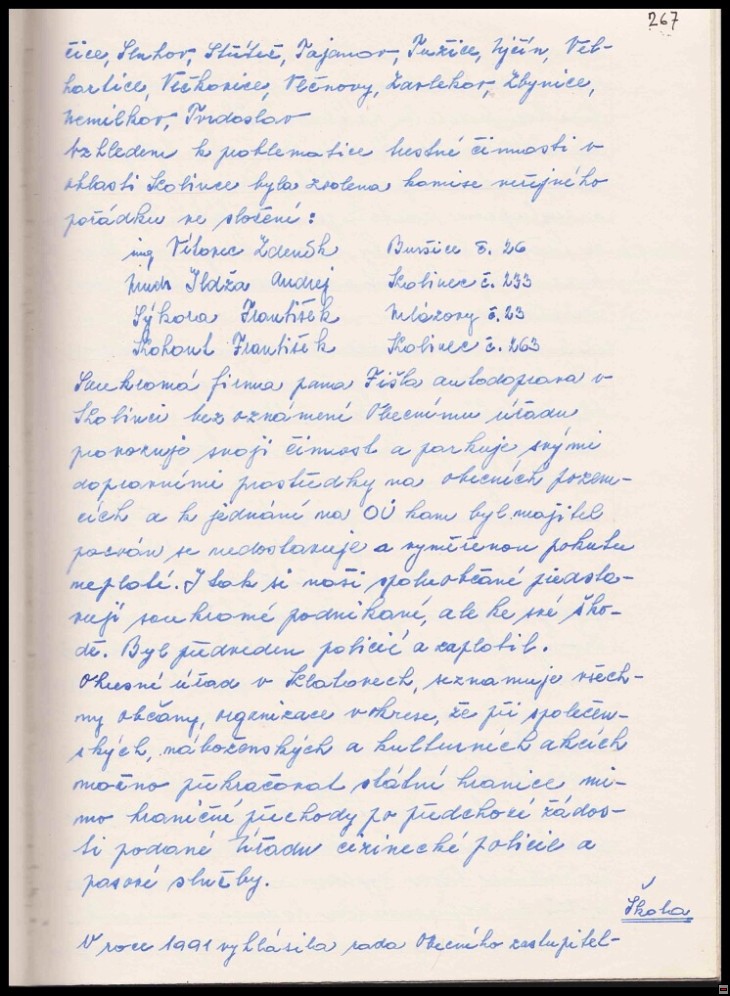 267
čice, Sluhov, Střítež, Tajanov, Tužice, Újčín, Veř-
hartice, Večkovice, Vlčnovy, Zavlekov, Zbynice,
Nemilkov, Tvrdoslav
Vzhledem k problematice trestné činnosti v
oblasti Kolince byla zvolena komise veřejného
pořádku ve složení:
ing Vítovec Zdeněk Buršice č. 26
Mudr Ildža Andrej Kolinec č. 233
Sýkora František Mlázovy č. 23
Kohout František Kolinec č. 263
Soukromá firma pana Fišla autodoprava v
Kolinci bez oznámení Obecnímu úřadu
provozuje svoji činnost a parkuje svými
dopravními prostředky na obecních pozem-
cích a k jednání na OÚ kam byl majitel
pozván se nedostavuje a vyměřenou pokutu
neplatí. I tak si naši spoluobčané předsta-
vují soukromé podnikání, ale ke své ško-
dě. Byl předveden policií a zaplatil.
Okresní úřad v Klatovech, seznamuje všech-
ny občany, organizace v okrese, že při společen-
ských, náboženských a kulturních akcích
možno překračovat státní hranice mi-
mo hraniční přechody po předchozí žádos-
ti podané Úřadu cizinecké policie a
pasové služby.
Škola
V roce 1991 vyhlásila rada Obecního zastupitel-